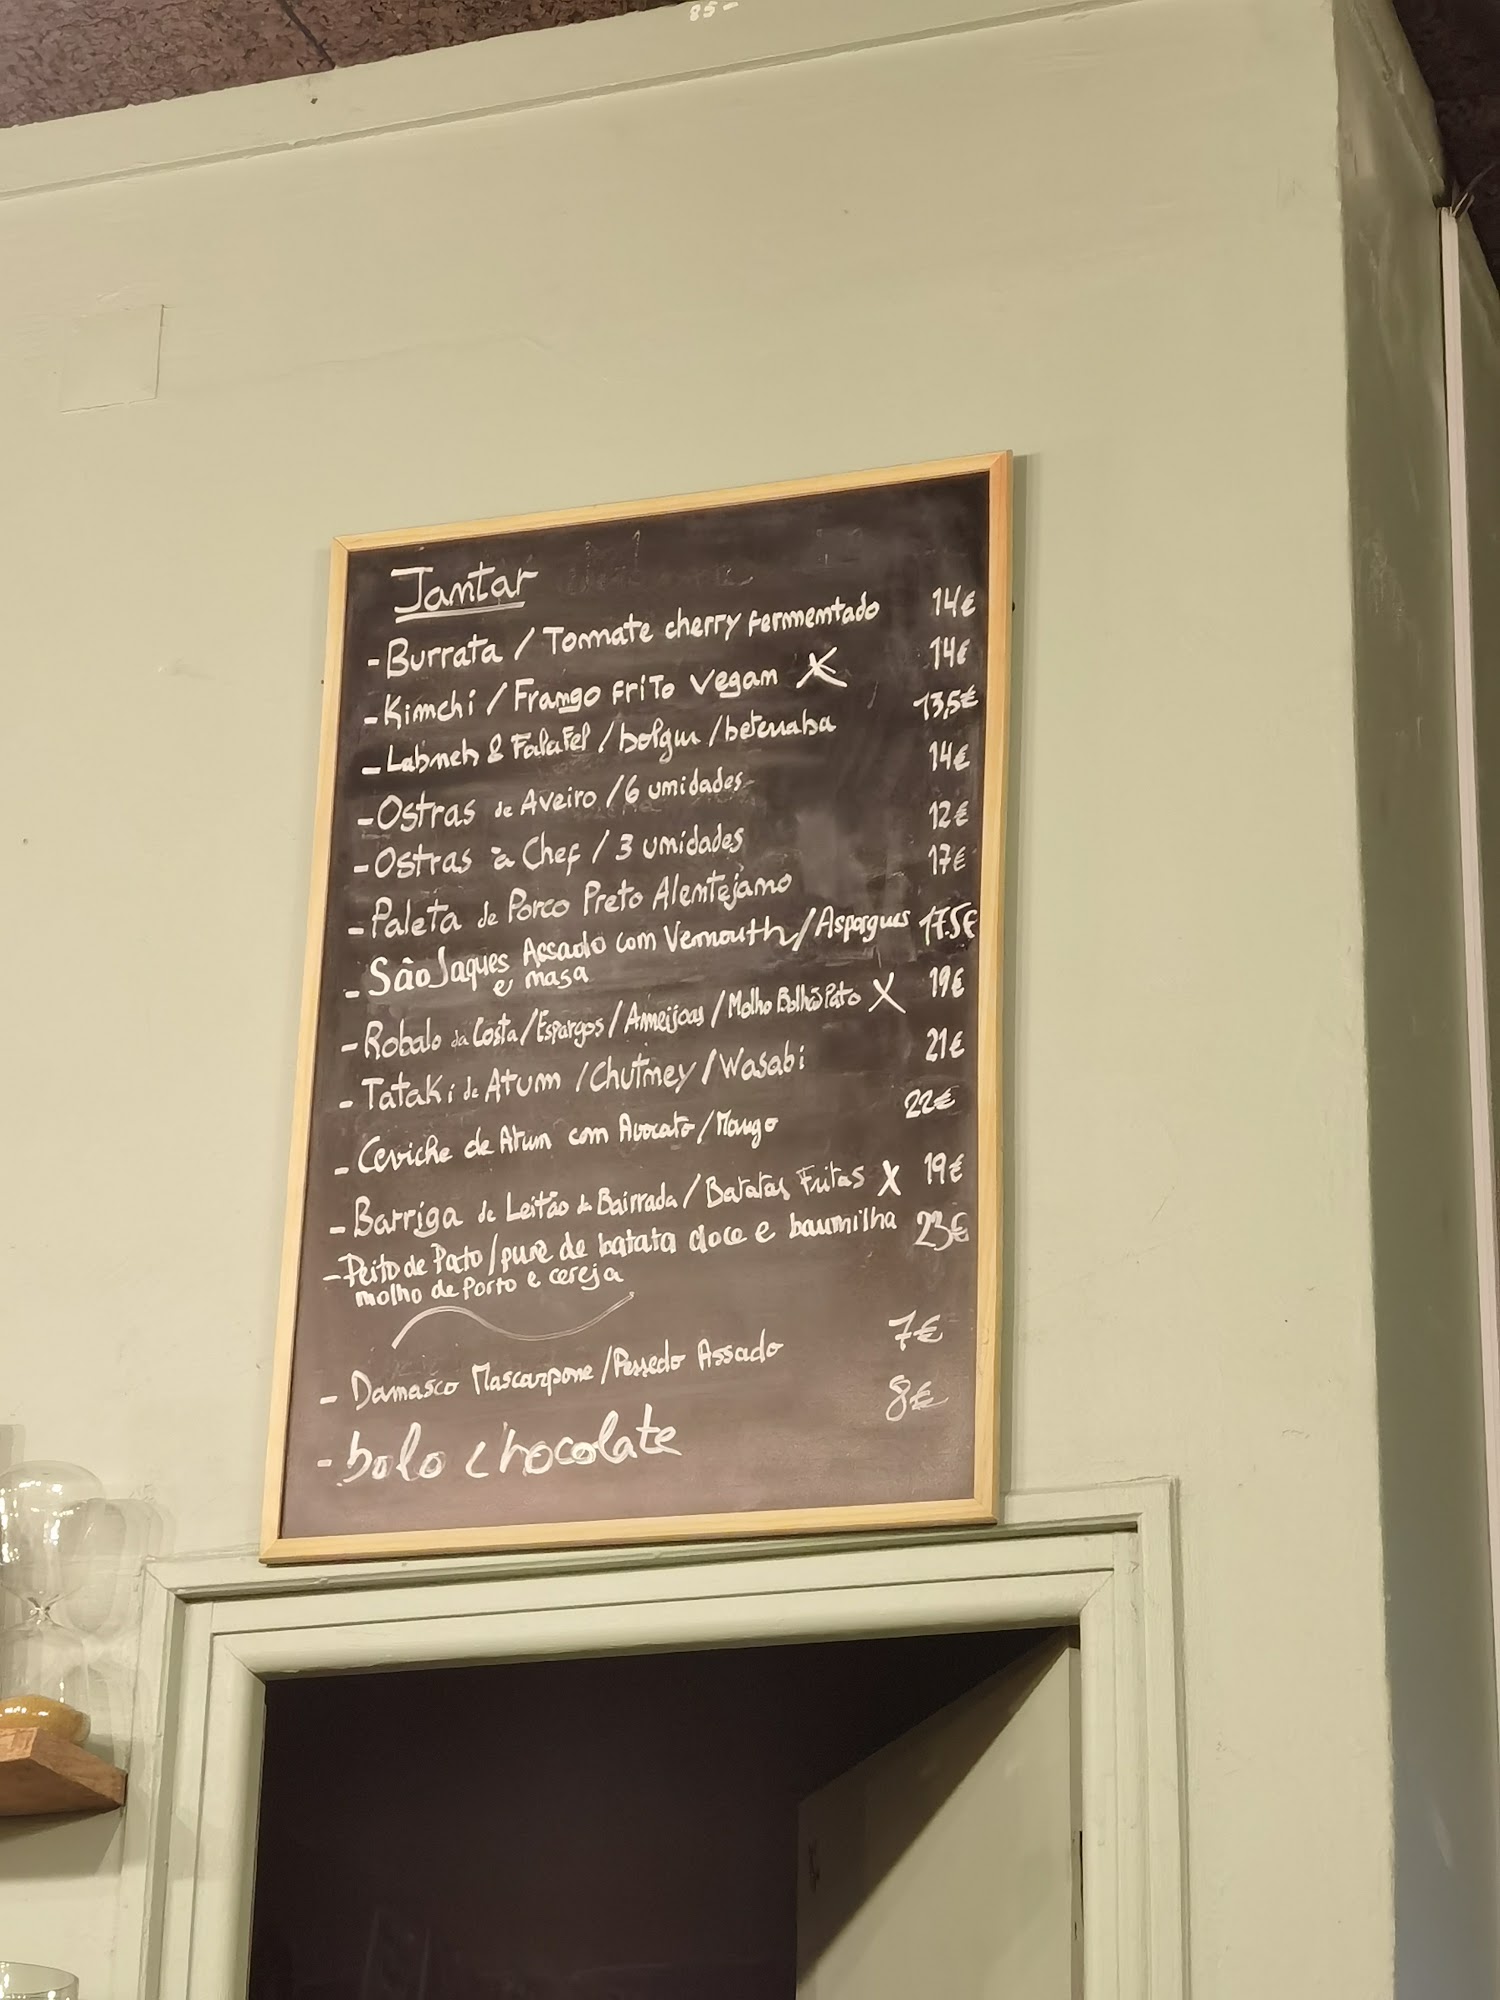 85-
Jantar
- Burrata / Tomate cherry fermentado 14€
- Kimchi / Frango frito vegan X 14€
- Labneh & Falafel / bolgur / beterraba 13,5€
- Ostras de Aveiro / 6 unidades 14€
- Ostras à Chef / 3 unidades 12€
- Paleta de Porco Preto Alentejano 17€
- São Jaques Assado com Vermouth / Aspargus 17.5€
e masa
- Robalo da Costa / Espargos / Ameijoas / Molho Bolhão Pato X 19€
- Tataki de Atum / Chutney / Wasabi 21€
- Ceviche de Atum com Avocato / Mango 22€
- Barriga de Leitão da Bairrada / Batatas Fritas X 19€
- Peito de Pato / pure de batata doce e baumilha 23€
molho de Porto e cereja
- Damasco Mascarpone / Assado 7€
- bolo chocolate 8€